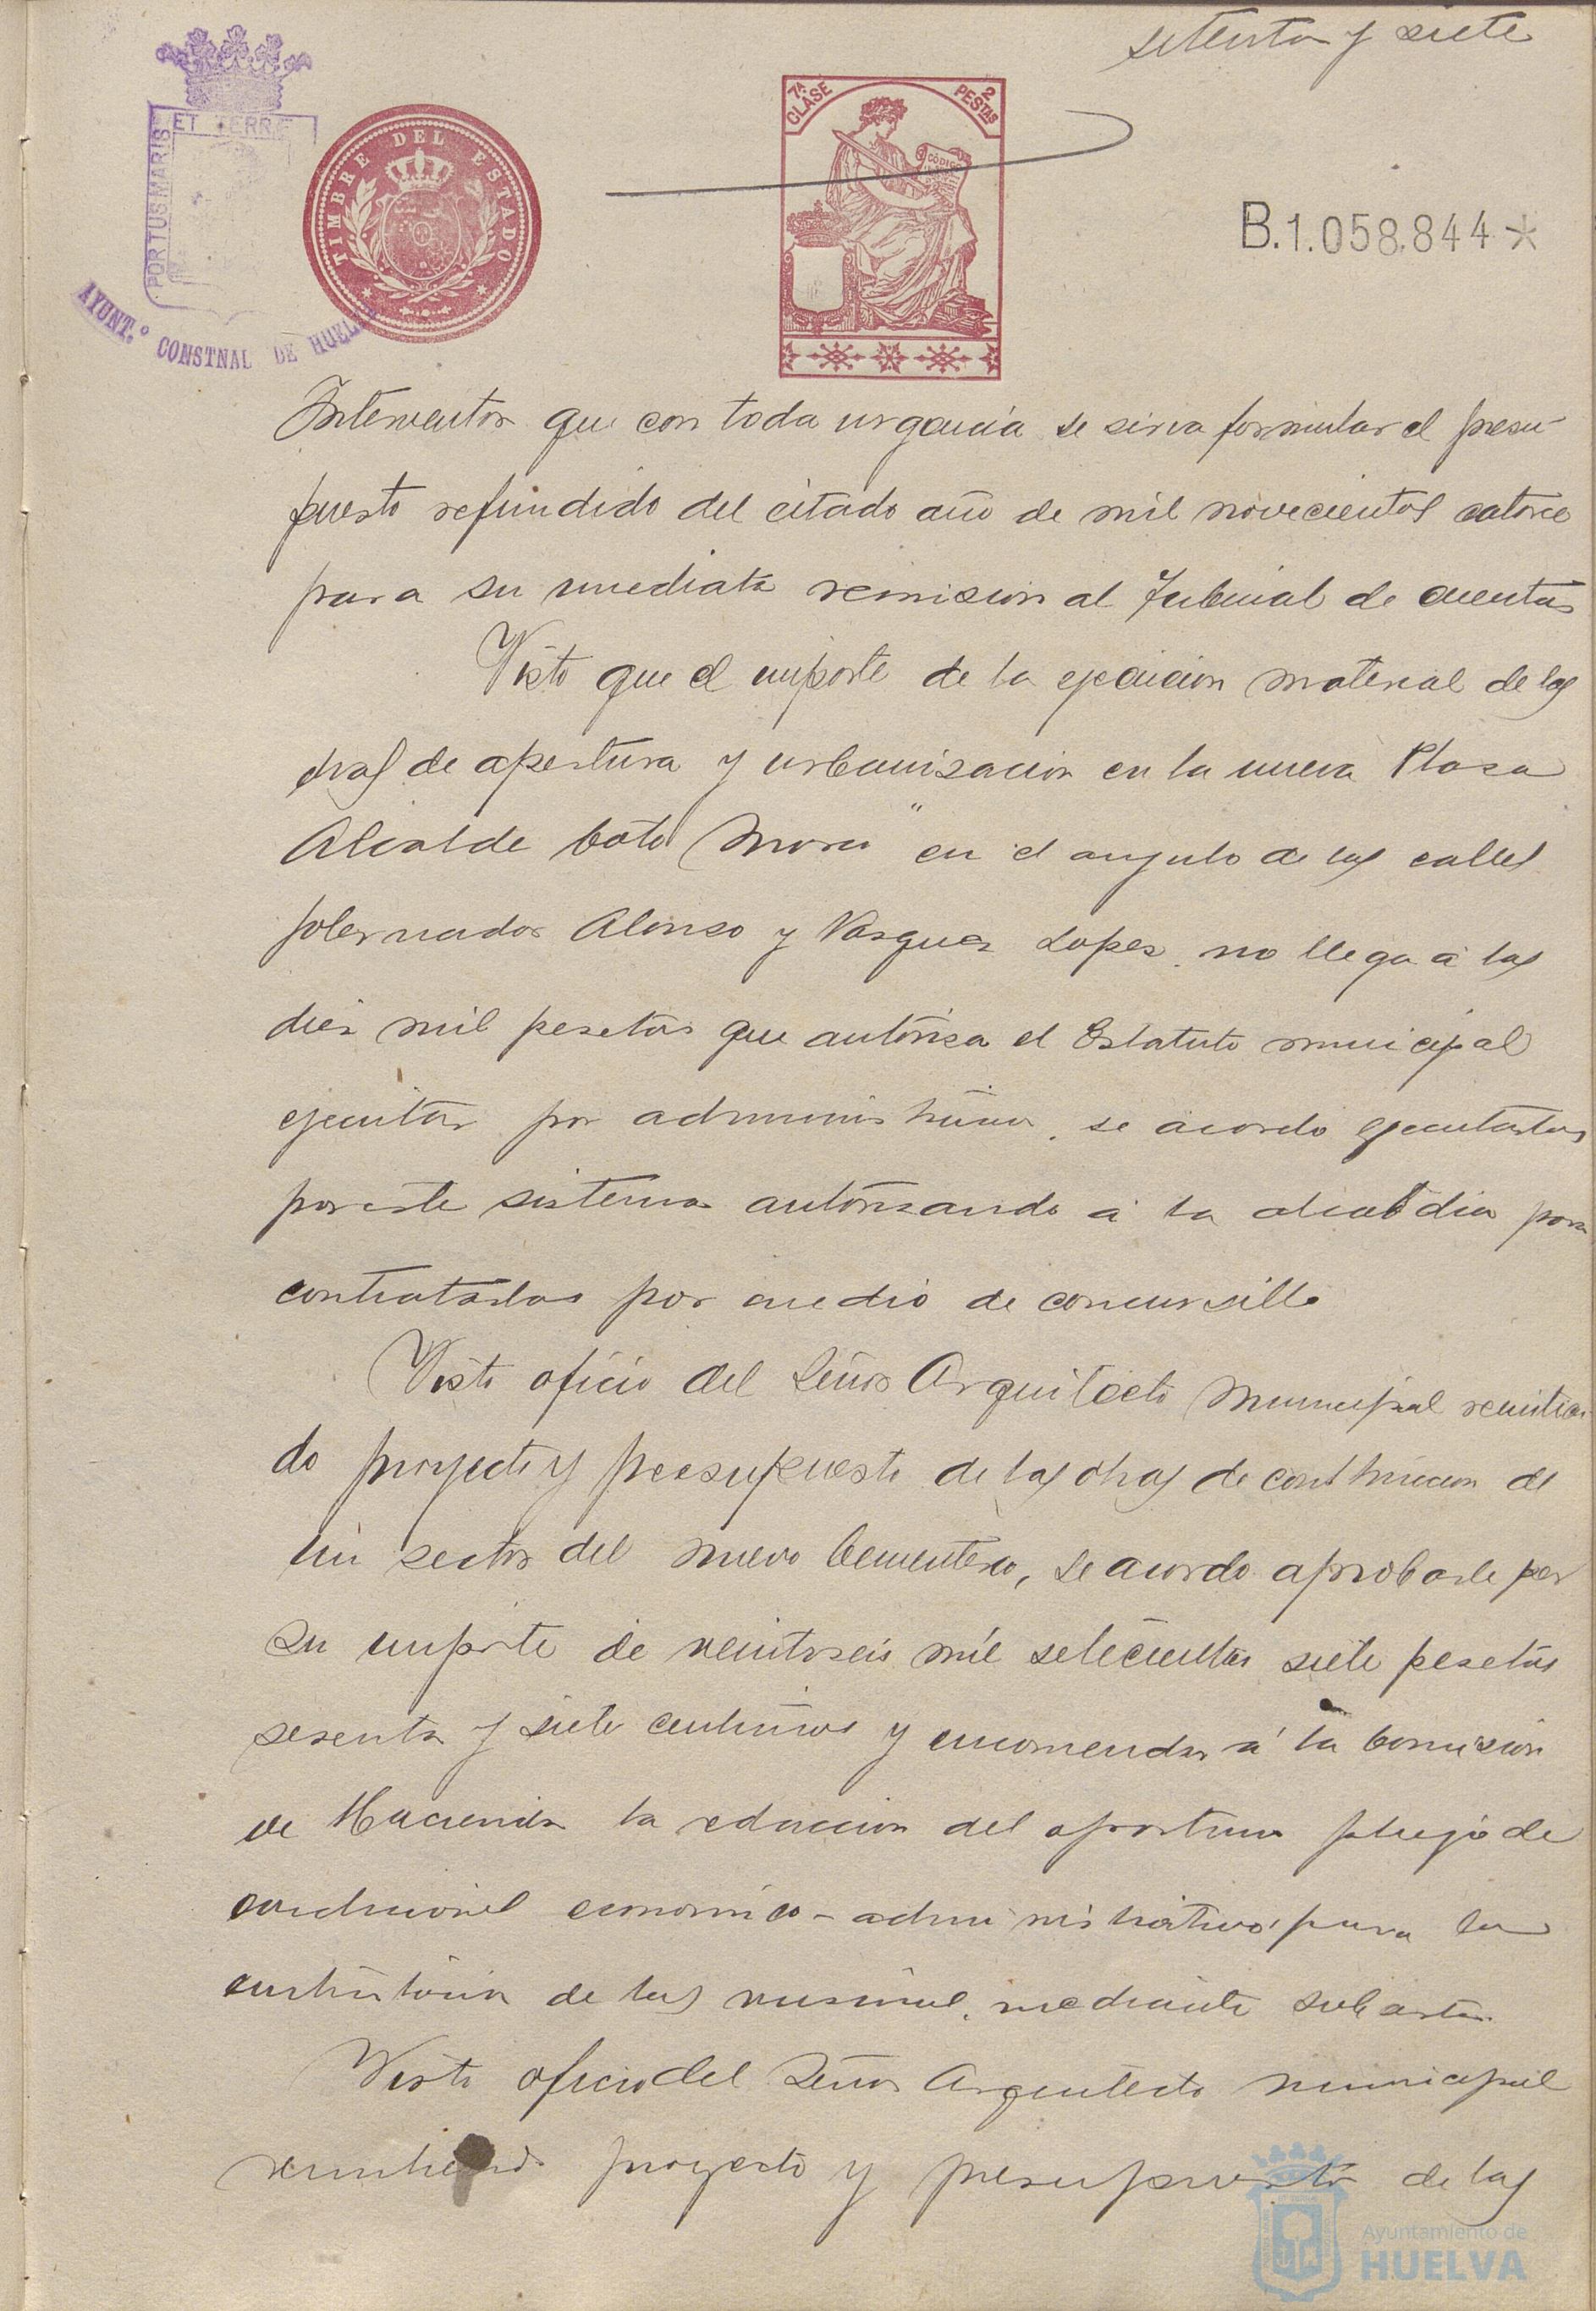 setenta y siete
ET TERRE
PORTUS MARIS
AYUNT.º CONSTNAL DE HUELVA
TIMBRE DEL ESTADO
7ª CLASE
2 PESTAS
CÓDIGO
B.1.058.844*
Interventor que con toda urgencia se sirva formular el presu-
puesto refundido del citado año de mil novecientos catorce
para su inmediata remision al Tribunal de cuentas
Visto que el importe de la ejecucion material de las
obras de apertura y urbanizacion en la nueva Plaza
Alcalde Coto Mora" en el angulo de las calles
Gobernador Alonso y Vazquez Lopez, no llega á las
diez mil pesetas que autoriza el Estatuto municipal
ejecutar por administracion, se acordo ejecutarlas
por este sistema autorizando á la alcaldia para
contratarlas por medio de concursillo
Visto oficio del Señor Arquitecto Municipal remitien-
do proyecto y presupuesto de las obras de construccion de
un sector del nuevo Cementerio, se acordo aprobarle por
su importe de veintiseis mil setecientas siete pesetas
sesenta y siete centimos y encomendar á la Comision
de Hacienda la redaccion del oportuno pliego de
condiciones economico-administrativas para la
de las mismas, mediante subasta.
Visto oficio del Señor Arquitecto municipal
remitiendo proyecto y presupuesto de las
Ayuntamiento de
HUELVA